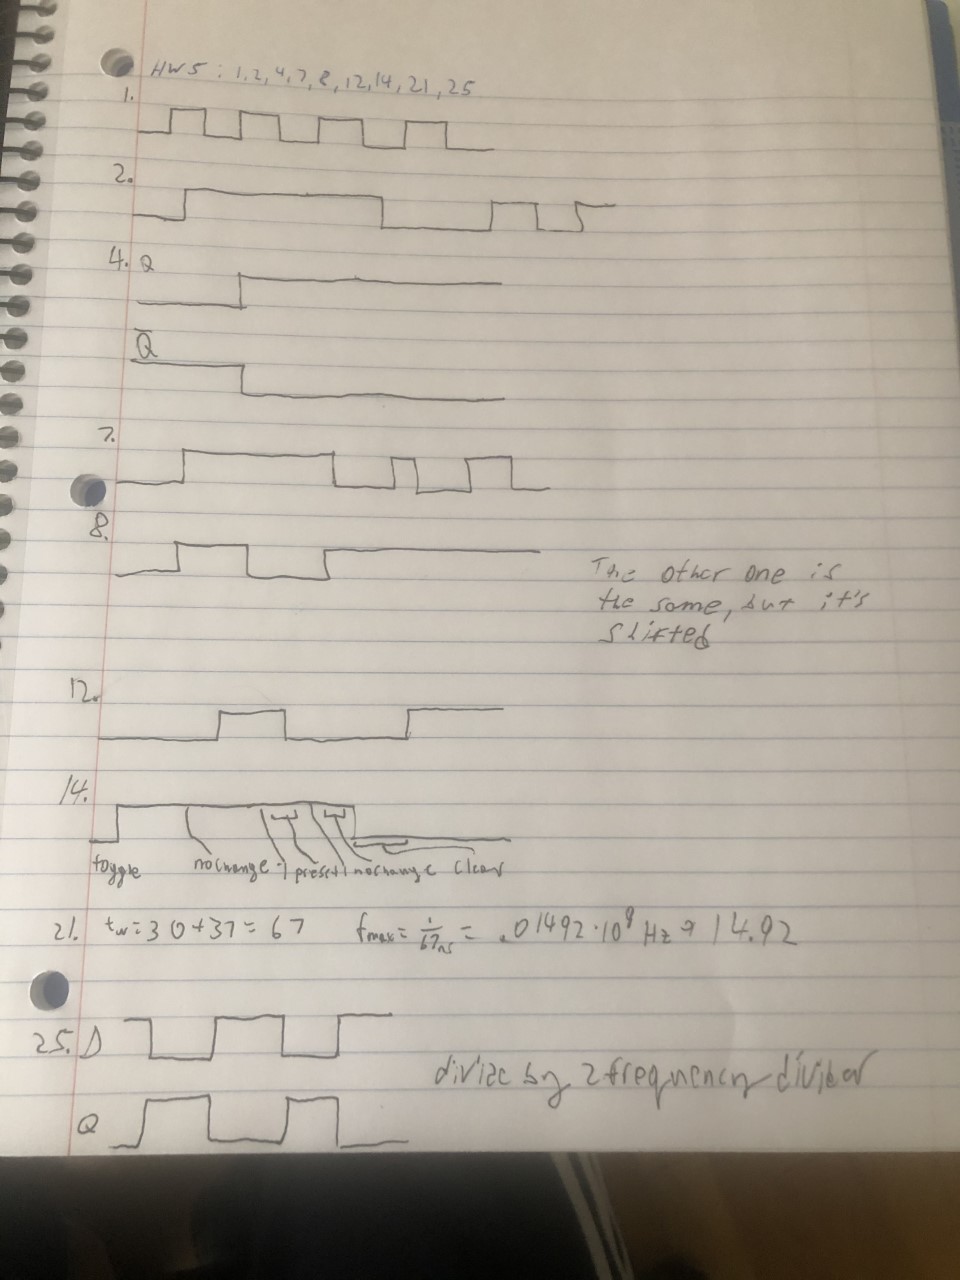 HW 5 : 1, 2, 4, 7, 8, 12, 14, 21, 25
1.
2.
4. Q
Q̅
7.
8.
The other one is
the same, but it's
shifted
12.
14.
toggle nochange preset nochange clear
21. tw = 30 + 37 = 67 fmax = 1/67ns = .01492 · 10⁹ Hz → 14.92
25. D
divide by 2 frequency divider
Q